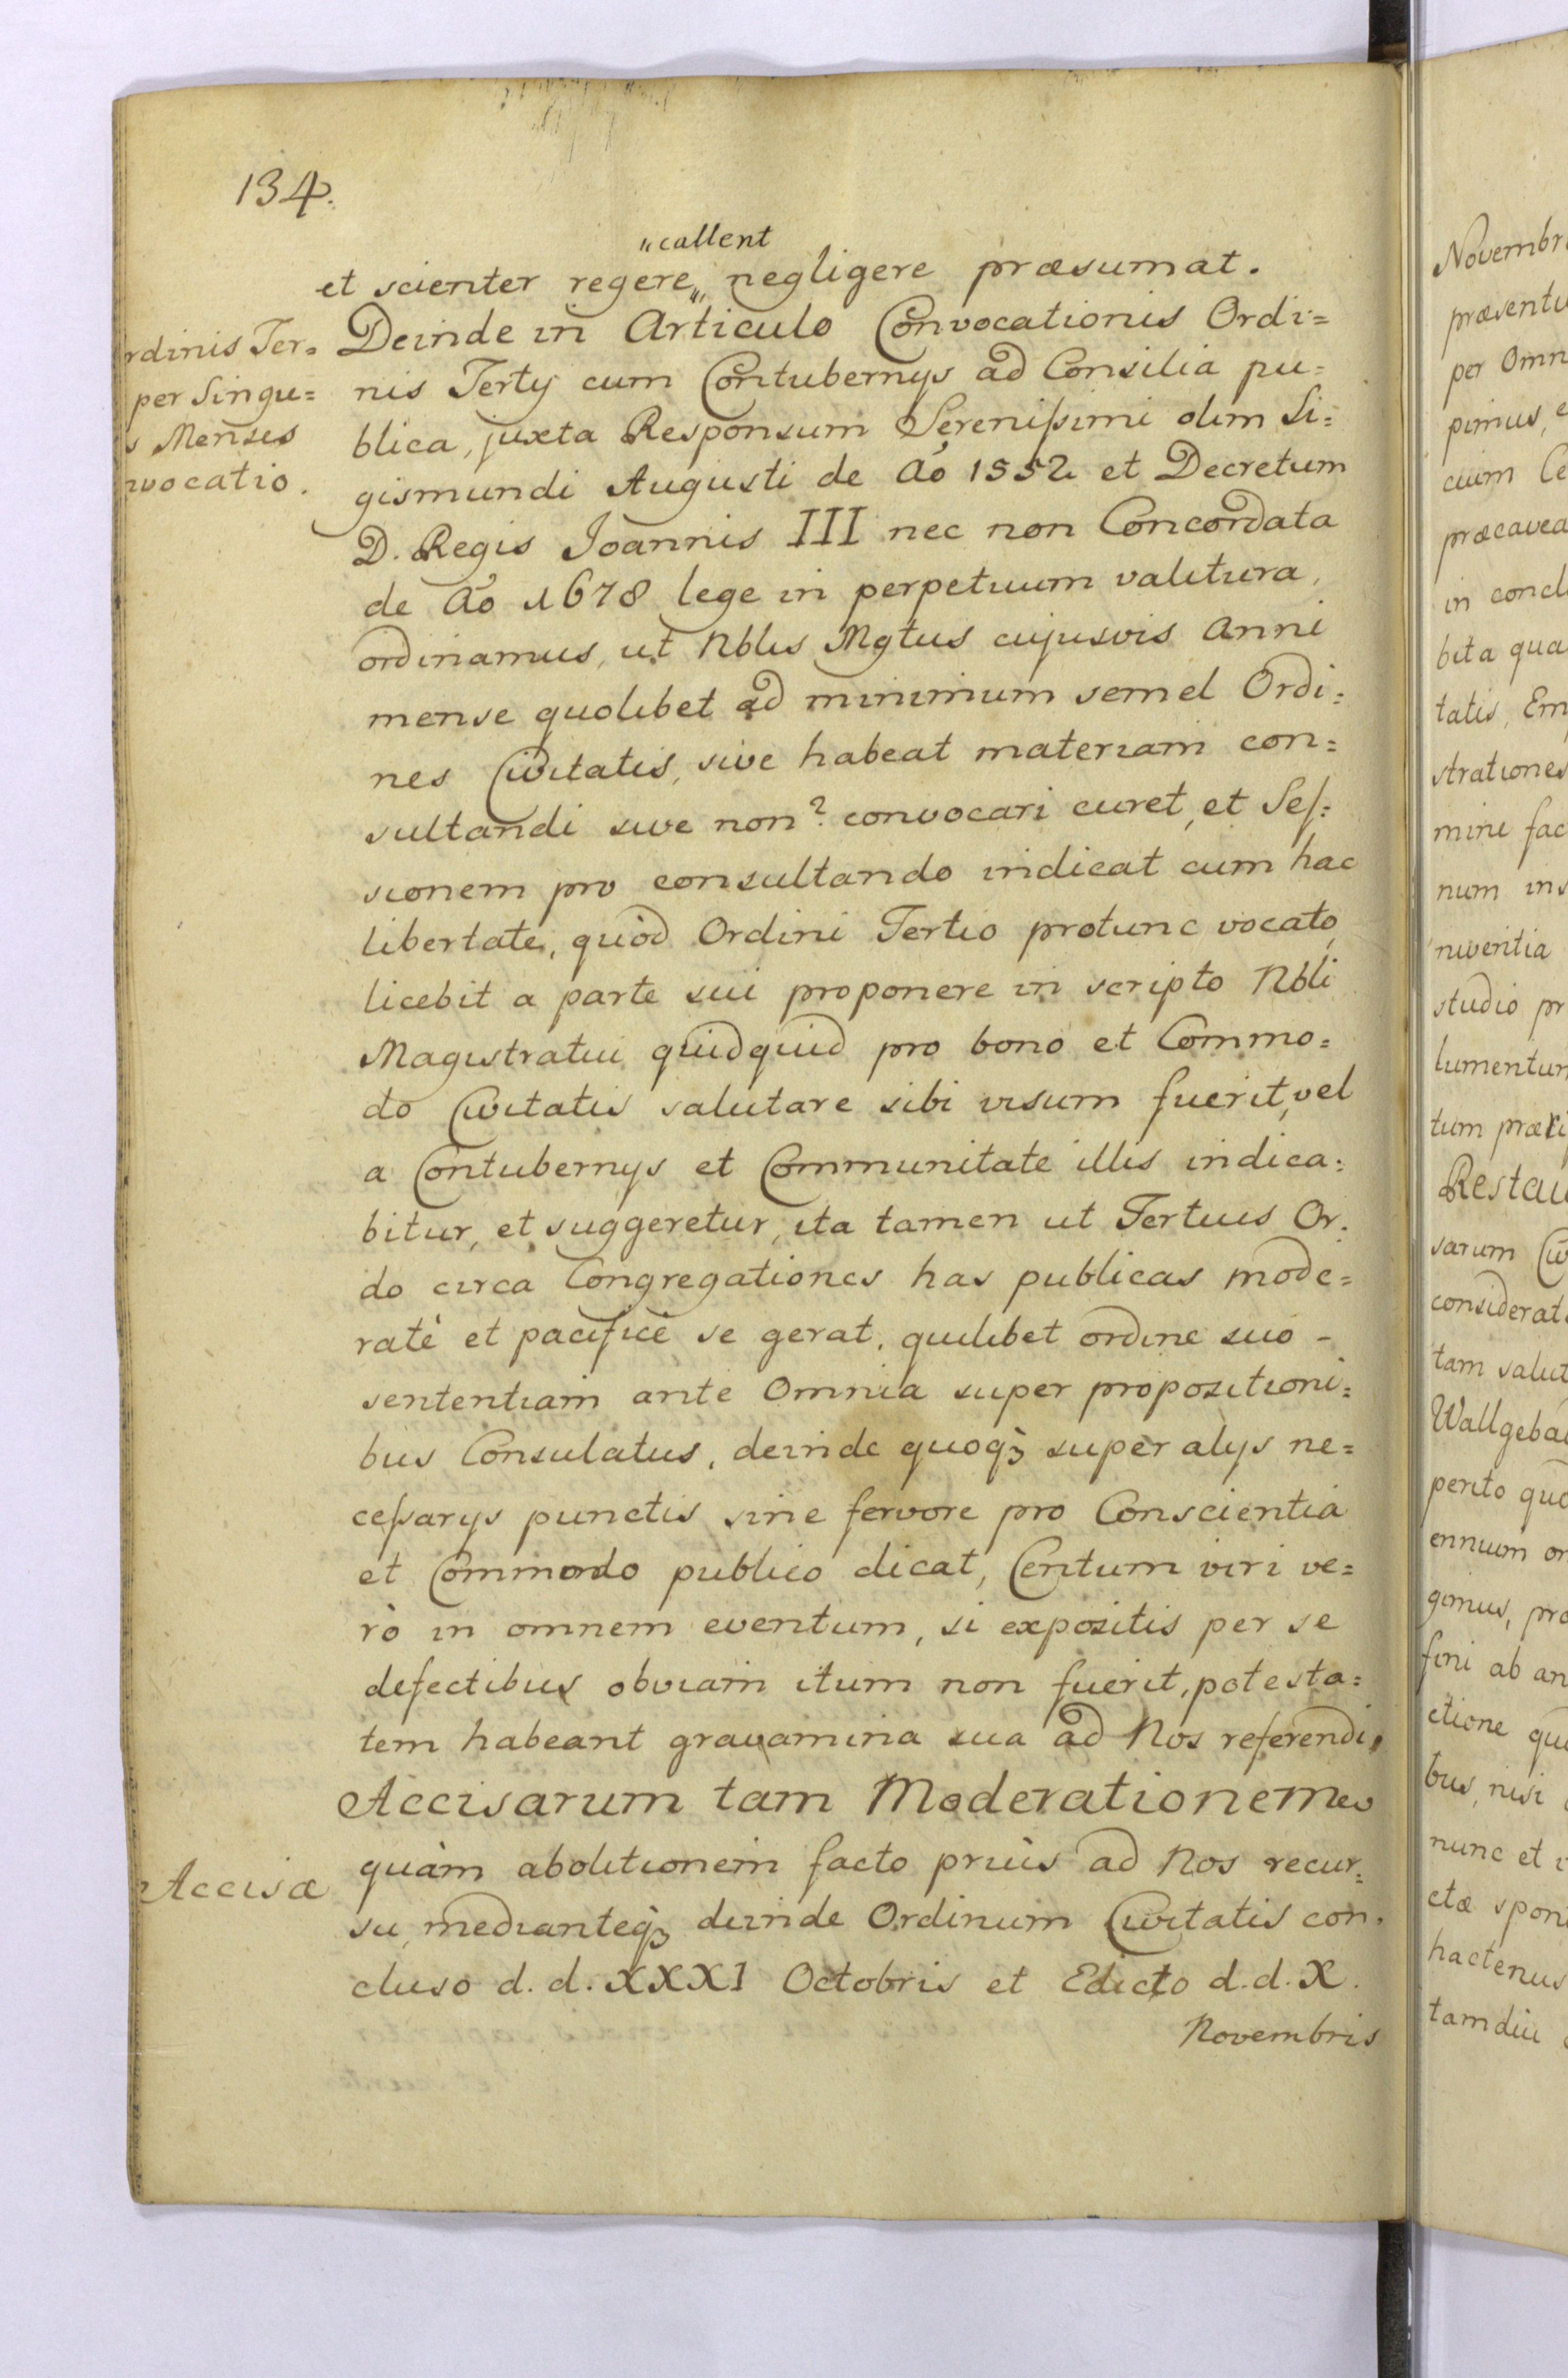 134.
"callent
et scienter regere,, negligere præsumat.
rdinis Ter=
per Singu=
s Menses
nvocatio.
Deinde in Articulo Convocationis Ordi=
nis Tertÿ cum Contubernÿs ad Consilia pu=
blica, juxta Responsum Serenißimi olim Si=
gismundi Augusti de Aō 1552 et Decretum
D. Regis Joannis III nec non Concordata
de Aō 1678 lege in perpetuum valitura,
ordinamus, ut Nblis Mgtus cujusvis Anni
mense quolibet ad minimum semel Ordi=
nes Civitatis, sive habeat materiam con=
sultandi sive non? convocari curet, et Seſ=
sionem pro consultando indicat cum hac
libertate, quòd Ordini Tertio protunc vocato
licebit a parte sui proponere in scripto Nbli
Magistratui quidquid pro bono et Commo=
do Civitatis salutare sibi visum fuerit, vel
a Contubernÿs et Communitate illis indica=
bitur, et suggeretur, ita tamen ut Tertius Or=
do circa Congregationes has publicas mode=
ratè et pacificè se gerat, quilibet ordine suo -
sententiam ante Omnia super propositioni=
bus Consulatus, deinde quoqȝ super alÿs ne=
ceßarÿs punctis sine fervore pro Conscientia
et Commodo publico dicat, Centum viri ve=
rò in omnem eventum, si expositis per se
defectibus obviam itum non fuerit, potesta=
tem habeant gravamina sua ad Nos referendi,
Accisarum tam Moderationem
Accisæ
quàm abolitionem facto priùs ad Nos recur=
su, medianteqȝ deinde Ordinum Civitatis con=
cluso d. d. XXXI Octobris et Edicto d. d. X.
Novembris
Novembr
præsentu
per Omn
pimus, e
cuim Ce
præcavea
in concl
bita qua
tatis, Em
strationes
mini fac
num ins
niventia
studio pr
lumentum
tum præri
Restau
sarum Civ
considerat
tam salut
Wallgebau
perito quo
ennium or
gimus, pro
fini ab an
ctione qu
bus, nisi
nunc et i
ctæ spon
hactenus
tamdiu